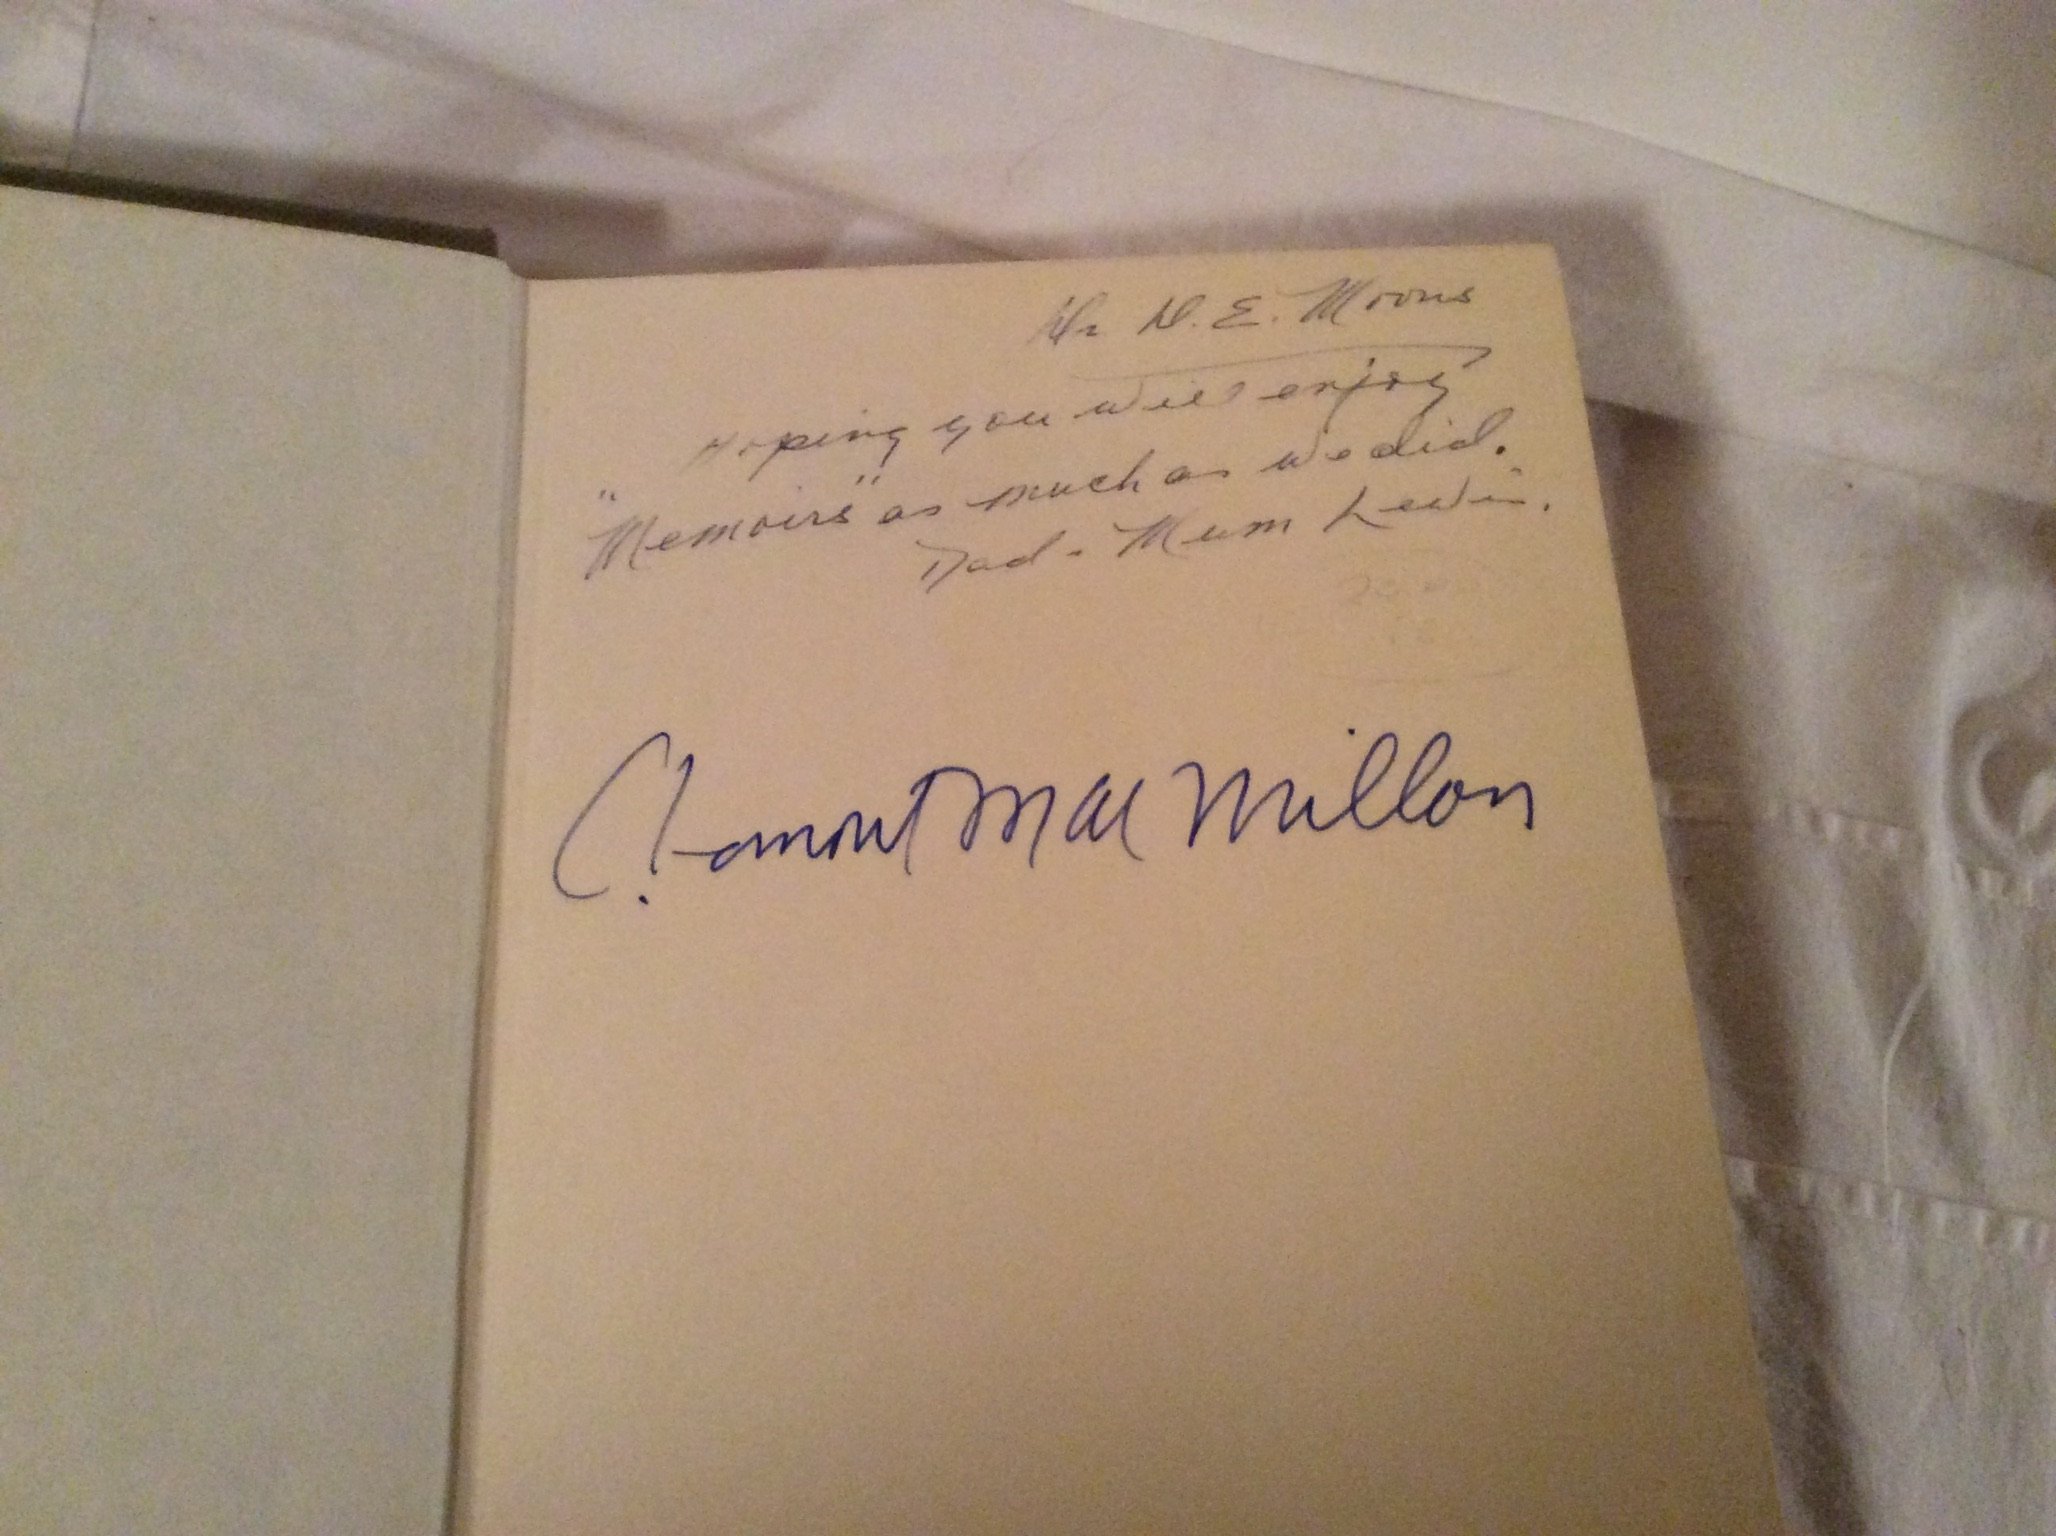 Dr D. E. Moons
Hoping you will enjoy
"Memoirs" as much as we did.
Dad - Mum Lewis.
MacMillan